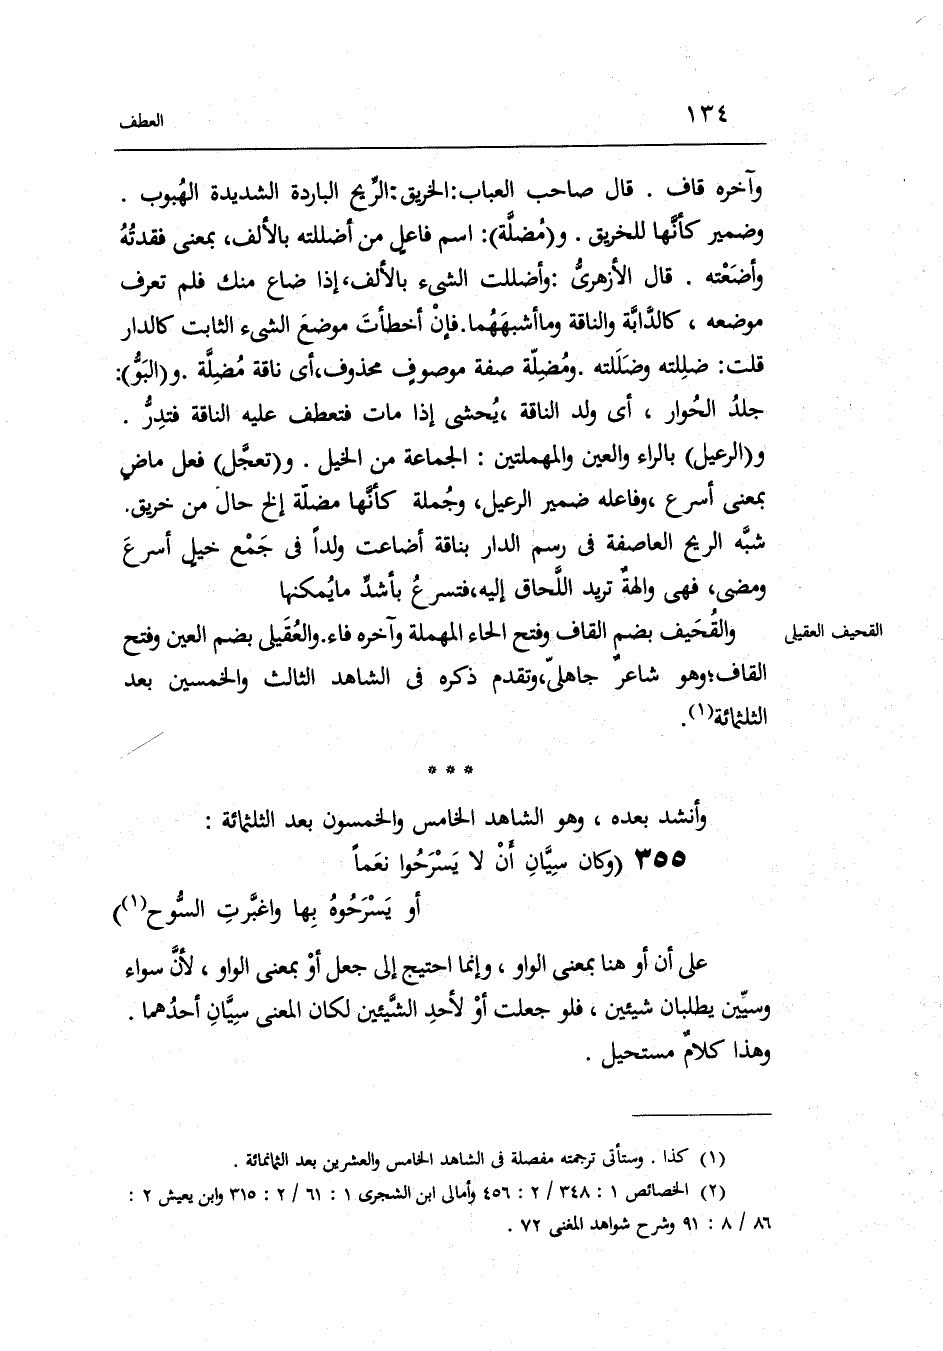 ١٣٤
العطف
وآخره قاف . قال صاحب العباب:الخريق:الرِّيح الباردة الشديدة الهُبوب .
وضمير كأنَّها للخريق . و(مُضلَّة): اسم فاعلٍ من أضللته بالألف، بمعنى فقدتُهُ
وأضَعْته . قال الأزهرىُّ :وأضللت الشىء بالألف،إذا ضاع منك فلم تعرف
موضعه ، كالدَّابَّة والناقة وماأشبهَهُما.فإنْ أخطأتَ موضعَ الشىء الثابت كالدار
قلت: ضلِلته وضَلَلته .ومُضلّة صفة موصوفٍ محذوف،أى ناقة مُضلَّة .و(البَوُّ):
جلدُ الحُوار ، أى ولد الناقة ،يُحشى إذا مات فتعطف عليه الناقة فتدِرُّ .
و(الرعيل) بالراء والعين والمهملتين : الجماعة من الخيل . و(تعجَّل) فعل ماضٍ
بمعنى أسرع ،وفاعله ضمير الرعيل، وجُملة كأنَّها مضلّة إلخ حال من خريق.
شبَّه الريح العاصفة فى رسم الدار بناقة أضاعت ولداً فى جَمْع خيلٍ أسرعَ
ومضى، فهى والهةٌ تريد اللَّحاق إليه،فتسرعُ بأشدِّ مايُمكنها
والقُحَيف بضم القاف وفتح الحاء المهملة وآخره فاء.والعُقَيلى بضم العين وفتح
القحيف العقيلى
القاف؛وهو شاعرٌ جاهلىّ،وتقدم ذكره فى الشاهد الثالث والخمسين بعد
الثلثائة(١).
* * *
وأنشد بعده ، وهو الشاهد الخامس والخمسون بعد الثلثائة :
٣٥٥ (وكان سِيَّانِ أَنْ لا يَسْرَحُوا نعَماً
أو يَسْرَحُوهُ بِها واغبَّرتِ السُّوح(١))
على أن أو هنا بمعنى الواو ، وإنما احتيج إلى جعل أوْ بمعنى الواو ، لأنَّ سواء
وسيِّين يطلبان شيئين ، فلو جعلت أوْ لأحدِ الشَّيئين لكان المعنى سِيَّانِ أحدُهما .
وهذا كلامٌ مستحيل .
(١) كذا . وستأتى ترجمته مفصلة فى الشاهد الخامس والعشرين بعد الثمانمائة .
(٢) الخصائص ١ : ٣٤٨ / ٢ : ٤٥٦ وأمالى ابن الشجرى ١ : ٦١ / ٢ : ٣١٥ وابن يعيش ٢ :
٨٦ / ٨ : ٩١ وشرح شواهد المغنى ٧٢ .